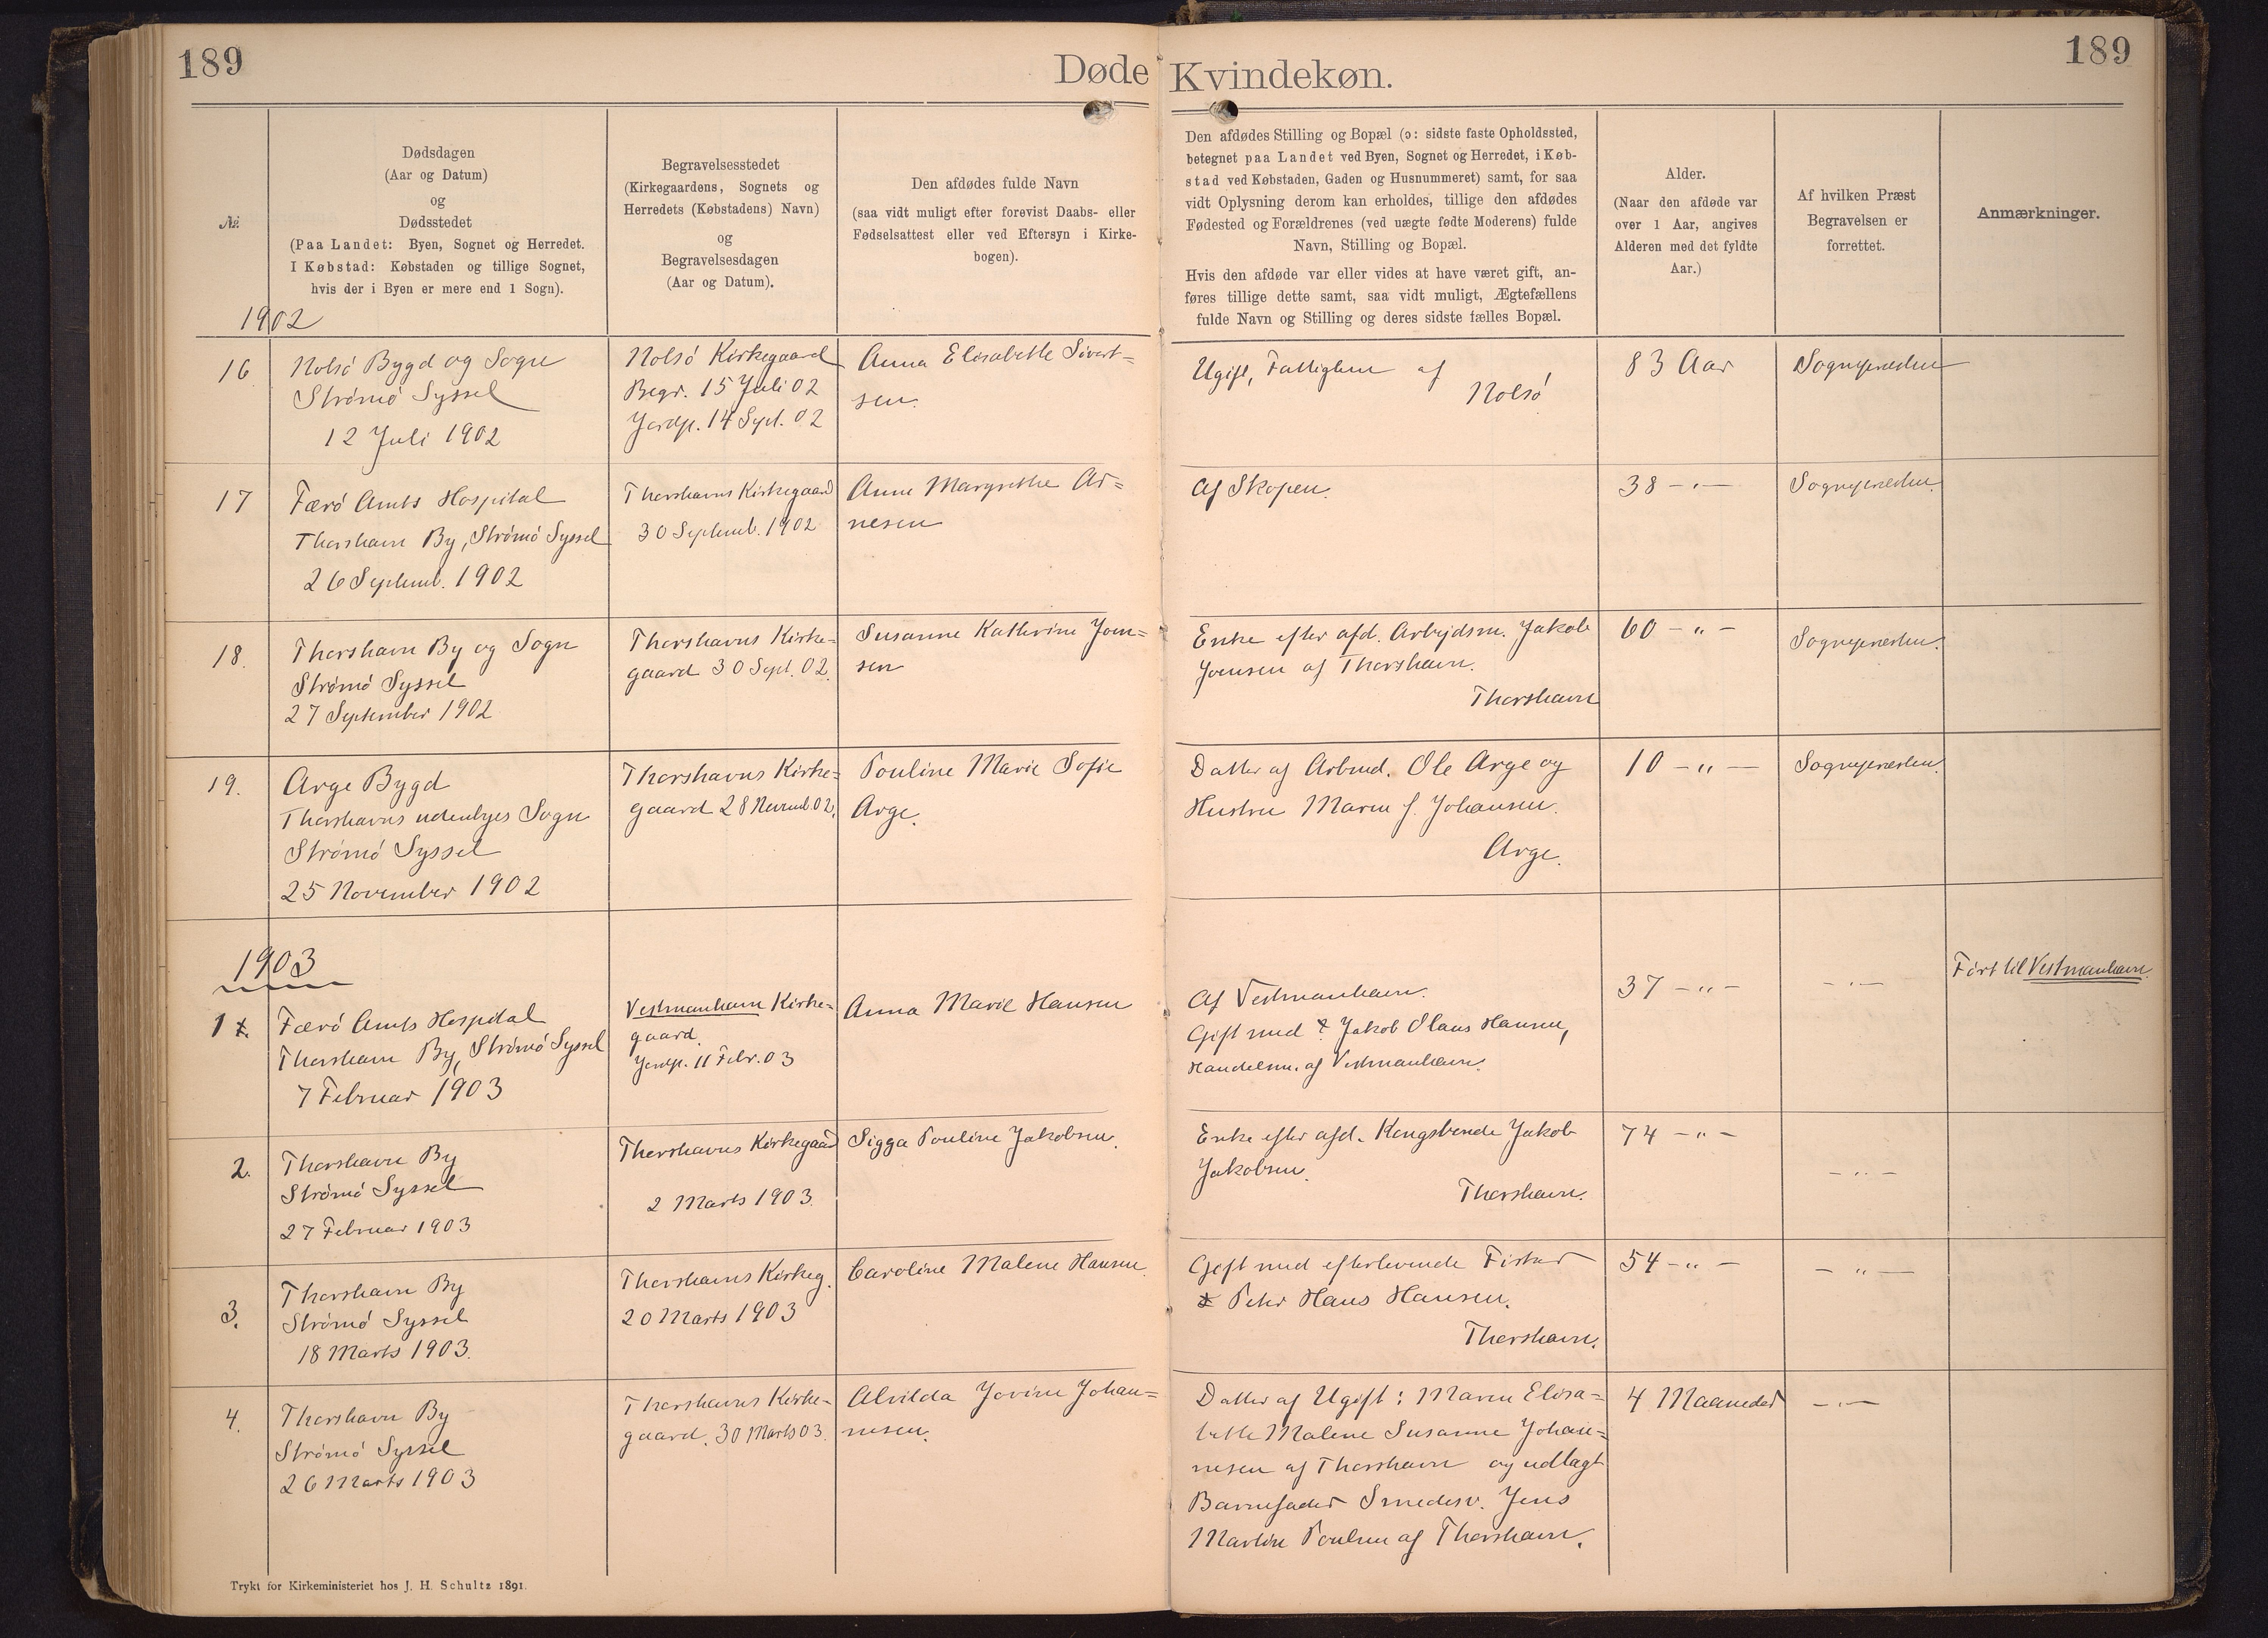 189
Døde Kvindekøn.
189
№
Dødsdagen
(Aar og Datum)
og
Dødsstedet
(Paa Landet: Byen, Sognet og Herredet.
I Købstad: Købstaden og tillige Sognet,
hvis der i Byen er mere end 1 Sogn).
Begravelsesstedet
(Kirkegaardens, Sognets og
Herredets (Købstadens) Navn)
og
Begravelsesdagen
(Aar og Datum).
Den afdødes fulde Navn
(saa vidt muligt efter forevist Daabs- eller
Fødselsattest eller ved Eftersyn i Kirke-
bogen).
Den afdødes Stilling og Bopæl (ɔ: sidste faste Opholdssted,
betegnet paa Landet ved Byen, Sognet og Herredet, i Køb-
stad ved Købstaden, Gaden og Husnummeret) samt, for saa
vidt Oplysning derom kan erholdes, tillige den afdødes
Fødested og Forældrenes (ved uægte fødte Moderens) fulde
Navn, Stilling og Bopæl.
Hvis den afdøde var eller vides at have været gift, an-
føres tillige dette samt, saa vidt muligt, Ægtefællens
fulde Navn og Stilling og deres sidste fælles Bopæl.
Alder.
(Naar den afdøde var
over 1 Aar, angives
Alderen med det fyldte
Aar.)
Af hvilken Præst
Begravelsen er
forrettet.
Anmærkninger.
1902
16
Nolsö Bygd og Sogn
Strömö Syssel
12 Juli 1902
Nolsö Kirkegaard
Begr. 15 Juli 02
Jordp. 14 Sept. 02
Anna Elisabette Sivert=
sen.
Ugift, Fattiglem af
Nolsö
83 Aar
Sognepræsten
17
Færö Amts Hospital
Thorshavn By, Strömö Syssel
26 Septemb. 1902
Thorshavns Kirkegaard
30 Septemb. 1902
Anne Margrethe Ar=
nesen
Af Skopen.
38 - " -
Sognepræsten.
18.
Thorshavn By og Sogn
Strömö Syssel
27 September 1902
Thorshavns Kirke=
gaard 30 Sept. 02.
Susanne Kathrine Joen=
sen
Enke efter afd. Arbejdsm. Jakob
Joensen af Thorshavn.
Thorshavn
60 - " -
Sognepræsten.
19.
Arge Bygd
Thorshavns udenbyes Sogn
Strömö Syssel
25 November 1902
Thorshavns Kirke=
gaard 28 Novemb. 02.
Pouline Marie Sofie
Arge.
Datter af Arbmd. Ole Arge og
Hustru Maren f. Johansen.
Arge.
10 - " -
Sognepræsten.
1903
1
Færö Amts Hospital
Thorshavn By, Strömö Syssel
7 Februar 1903
Vestmanhavn Kirke=
gaard.
Jordp. 11 Febr. 03
Anna Marie Hansen
Af Vestmanhavn.
Gift med Jakob Olaus Hansen,
Handelsm. af Vestmanhavn.
37 - " -
- " -
Fört til Vestmanhavn.
2.
Thorshavn By
Strömö Syssel
27 Februar 1903
Thorshavns Kirkegaard
2 Marts 1903.
Sigga Pouline Jakobsen.
Enke efter afd. Kongsbonde Jakob
Jakobsen.
Thorshavn.
74 - " -
- " -
3.
Thorshavn By
Strömö Syssel
18 Marts 1903.
Thorshavns Kirkeg.
20 Marts 1903
Caroline Malene Hansen.
Gift med efterlevende Fisker
Peter Hans Hansen.
Thorshavn.
54 - " -
- " -
4.
Thorshavn By
Strömö Syssel
26 Marts 1903
Thorshavns Kirke-
gaard. 30 Marts 03.
Alvilda Jovine Johan=
nesen.
Datter af Ugift: Maren Elisa=
bette Malene Susanne Johan=
nesen af Thorshavn og udlagt
Barnefader Smedesv. Jens
Martin Poulsen af Thorshavn.
4 Maaneder
- " -
Trykt for Kirkeministeriet hos J. H. Schultz 1891.